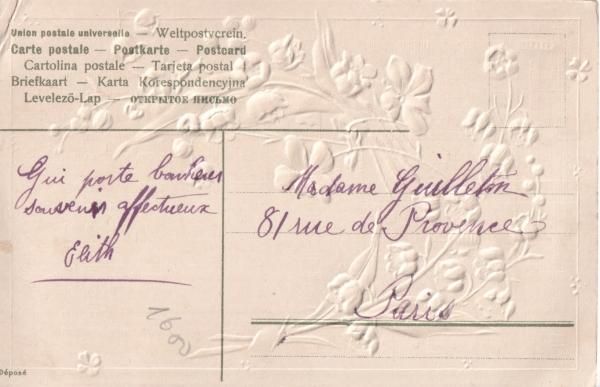 Union postale universelle — Weltpostverein.
Carte postale — Postkarte — Postcard
Cartolina postale — Tarjeta postal
Briefkaart — Karta Korespondencyjna
Levelező-Lap — ОТКРЫТОЕ ПИСЬМО
Gui porte bonheur
souvenir affectueux
Edith
Madame Guilleton
81 rue de Provence
Paris
Déposé